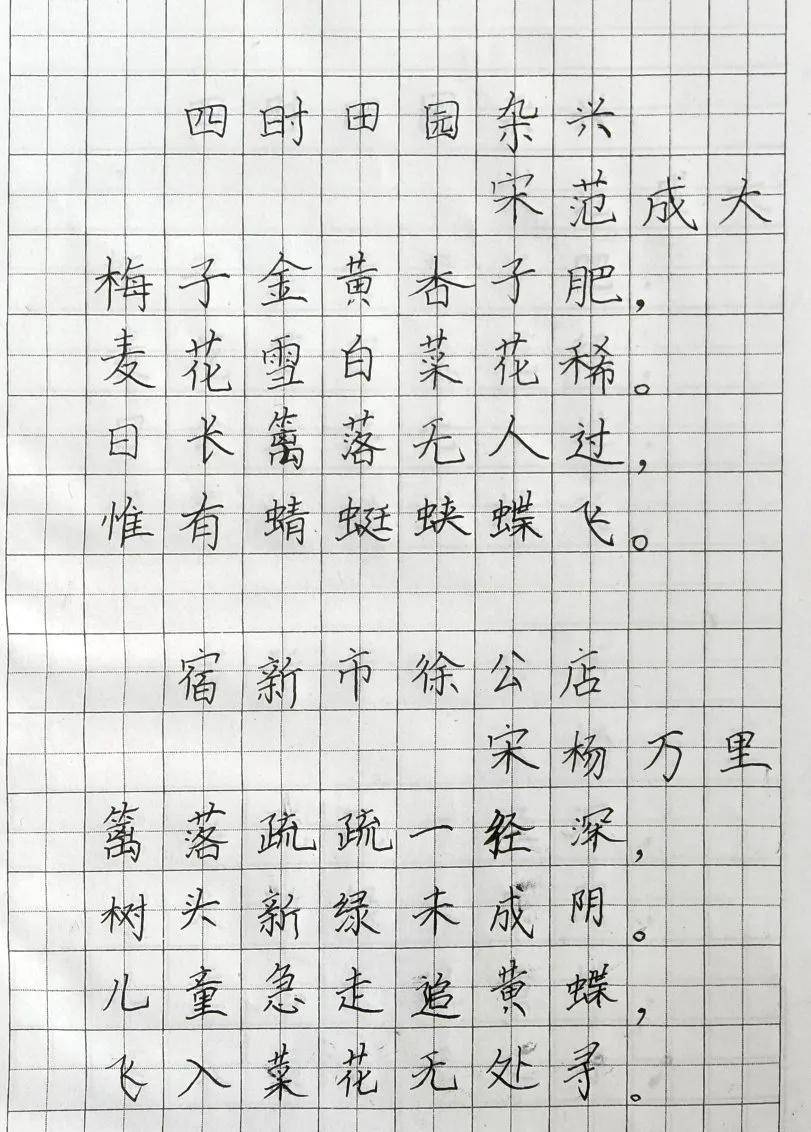 四时田园杂兴
宋范成大
梅子金黄杏子肥，
麦花雪白菜花稀。
日长篱落无人过，
惟有蜻蜓蛱蝶飞。
宿新市徐公店
宋杨万里
篱落疏疏一径深，
树头新绿未成阴。
儿童急走追黄蝶，
飞入菜花无处寻。